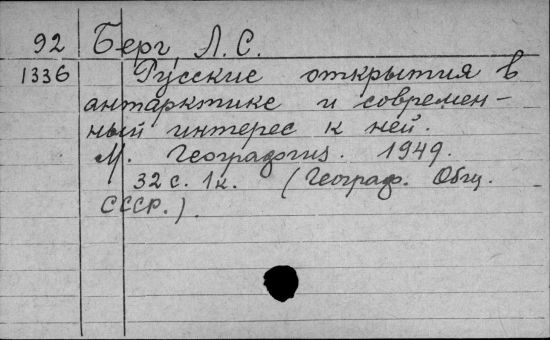 92 Берг, Л. С.
1336 Русские открытия в
антарктике и современ-
ный интерес к ней.
М. Географгиз. 1949.
32 с. 1 к. (Географ. Общ.
СССР.).